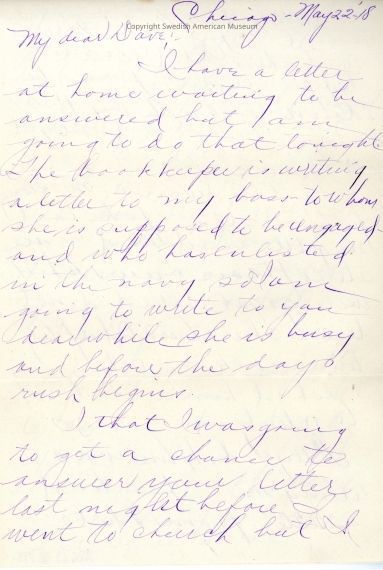 Chicago - May 22 '18
Copyright Swedish American Museum
My dear Dave:-
I have a letter
at home waiting to be
answered but am
going to do that tonight.
The bookkeeper is writing
a letter to my boss to whom
she is supposed to be engaged
and who has enlisted
in the navy so I am
going to write to you
dear while she is busy
and before the days
rush begins.
I that I was going
to get a chance to
answer your letter
last night before I
went to church but I